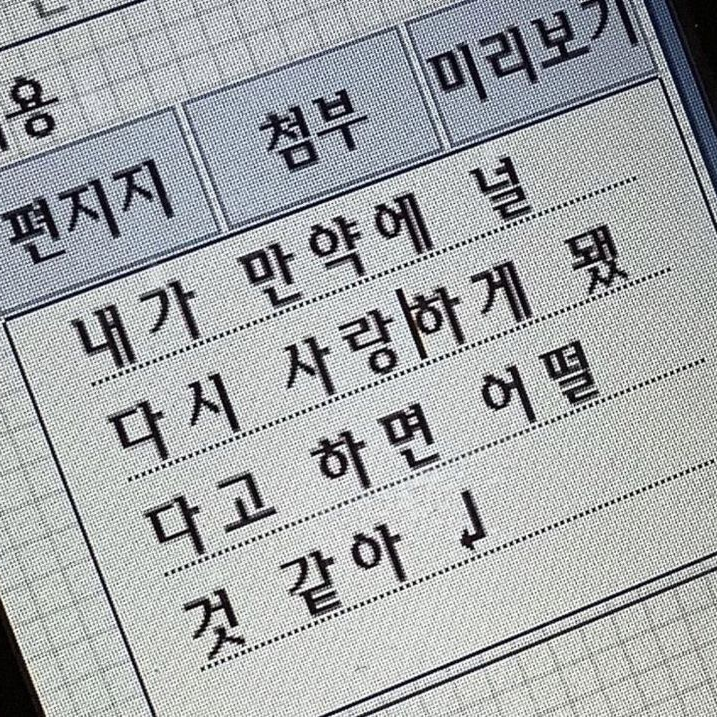 용
편지지 첨부 미리보기
내가 만약에 널
다시 사랑하게 됐
다고 하면 어떨
것 같아 ↲